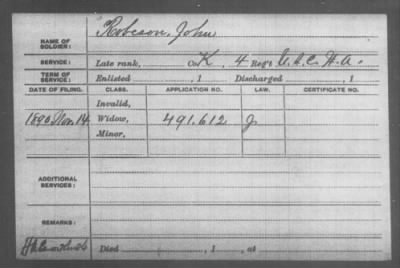 NAME OF SOLDIER: Robeson, John
SERVICE: Late rank, Co K, 4 Reg't U.S.C.H.A.
TERM OF SERVICE: Enlisted , 1 Discharged , 1
DATE OF FILING. CLASS. APPLICATION NO. LAW. CERTIFICATE NO.
Invalid,
1890 Nov. 14 Widow, 491.612 J
Minor,
ADDITIONAL SERVICES:
REMARKS:
Died , 1 , at